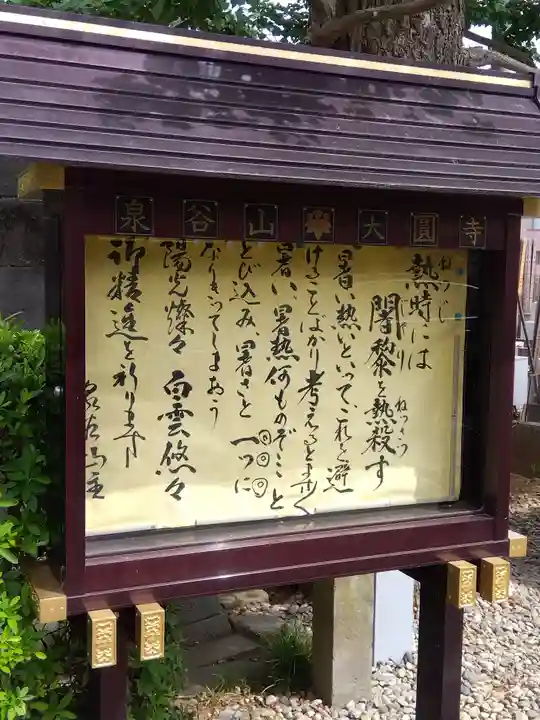 泉谷山 大圓寺
熱時には
ねつじ
闍黎を熱殺す
じゃり
ねっさつ
暑い、熱いといって、これを避
けることばかり考えるとまく
暑い、暑熱何ものぞ…と
とび込み、暑さと一つに
なりきってしまおう
陽光燦々 白雲悠々
御精進を祈ります